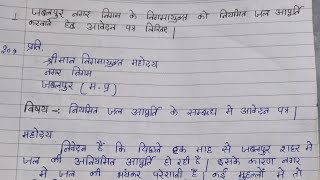 1 जबलपुर नगर निगम के निगमायुक्त को नियमित जल आपूर्ति
करवाने हेतु आवेदन पत्र लिखिए |
प्रति,
श्रीमान निगमायुक्त महोदय
नगर निगम
जबलपुर (म-प्र)
विषय -: नियमित जल आपूर्ति के सम्बन्ध में आवेदन पत्र |
महोदय
निवेदन है कि पिछले एक माह से जबलपुर शहर में
जल की अनियमित आपूर्ति हो रही है | इसके कारण नगर
में जल की भयंकर परेशानी है | कई मुहल्लों में तो